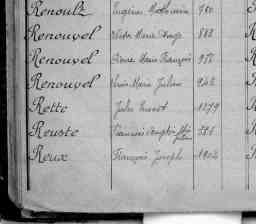 Renoult Eugène Mathurin 780
Renouvel Marie Ange 888
Renouvel Pierre Marie François 956
Renouvel Louis Marie Julien 942
Rette Jules Ernest 1279
Reuste François
Reux François Joseph 1904